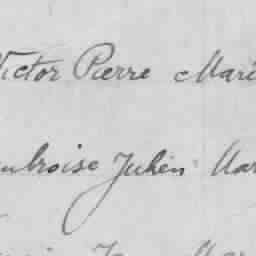 Victor Pierre Mari
mbroise Julien Mar